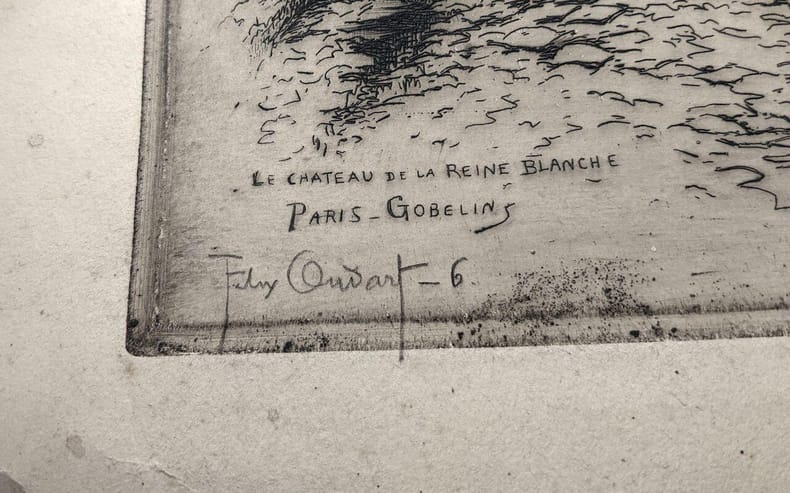 LE CHATEAU DE LA REINE BLANCHE
PARIS - GOBELINS
Felix Oudart - 6.